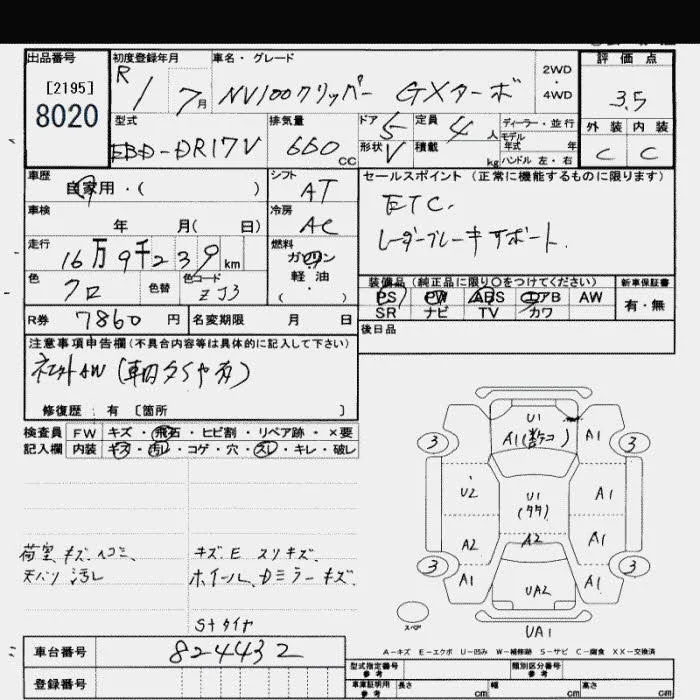 出品番号
[2195]
8020
初度登録年月
R 1 7月
車名・グレード
NV100クリッパー GXターボ
2WD
・
4WD
評価点
3.5
外装 内装
C C
型式
EBD-DR17V
排気量
660 CC
ドア 5
形状 V
定員 4 人
積載 kg
ディーラー・並行
モデル
年式 年
ハンドル 左・右
車歴
自家用・( )
シフト
AT
車検
年 月( 日)
冷房
AC
走行
16万9千239 km
燃料
ガソリン
軽油
( )
色
クロ
色替
色コード
ZJ3
R券 7860 円
名変期限 月 日
セールスポイント(正常に機能するものに限ります)
ETC.
レーダーブレーキサポート.
装備品(純正品に限り○をつけてください)
PS PW ABS エアB AW
SR ナビ TV カワ
新車保証書
有・無
後日品
注意事項申告欄(不具合内容等は具体的に記入して下さい)
修復歴:有 [箇所 ]
検査員 FW キズ・飛石・ヒビ割・リペア跡・×要
記入欄 内装 キズ・汚レ・コゲ・穴・スレ・キレ・破レ
荷室キズ、ヘコミ、
天バリ汚レ
キズE スリキズ、
ホイール、Dミラーキズ、
Sタイヤ
U1
A1
A1
3 3
U2
U1
A1
A2
A2
A1
3 3
A1
UA2
A1
スペア
UA1
A-キズ E-エクボ U-凹み W-補修跡 S-サビ C-腐食 XX-交換済
車台番号 824432
登録番号
型式指定番号
参考
類別区分番号
参考
車庫証明用
参考
長さ cm 幅 cm 高さ cm